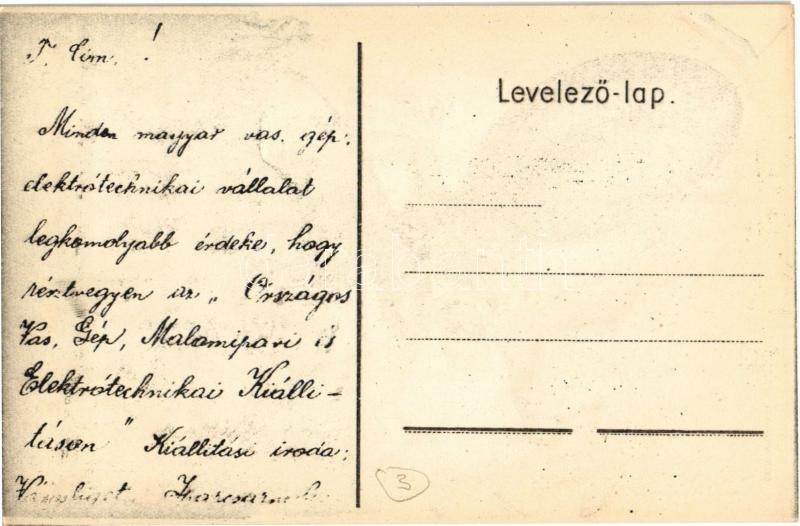 T. Cím. !
Minden magyar vas. gép.
elektrótechnikai vállalat
legkomolyabb érdeke, hogy
résztvegyen az „Országos
Vas, Gép, Malomipari és
Elektrótechnikai Kiálli-
táson" Kiállitási iroda:
Városliget. Iparcsarnok.
Levelező-lap.
darabanth
3